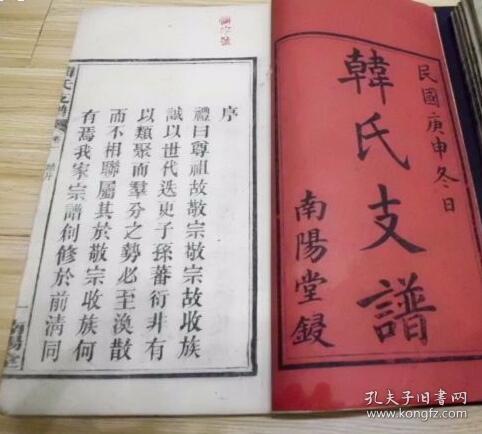 民國庚申冬日
韓氏支譜
南陽堂鋟
序
禮曰尊祖故敬宗敬宗故收族
誠以世代迭更子孫蕃衍非有
以類聚而羣分之勢必至渙散
而不相聯屬其於敬宗收族何
有焉我家宗譜創修於前清同
氏支譜
南陽堂
孔夫子旧书网
www.kongfz.com